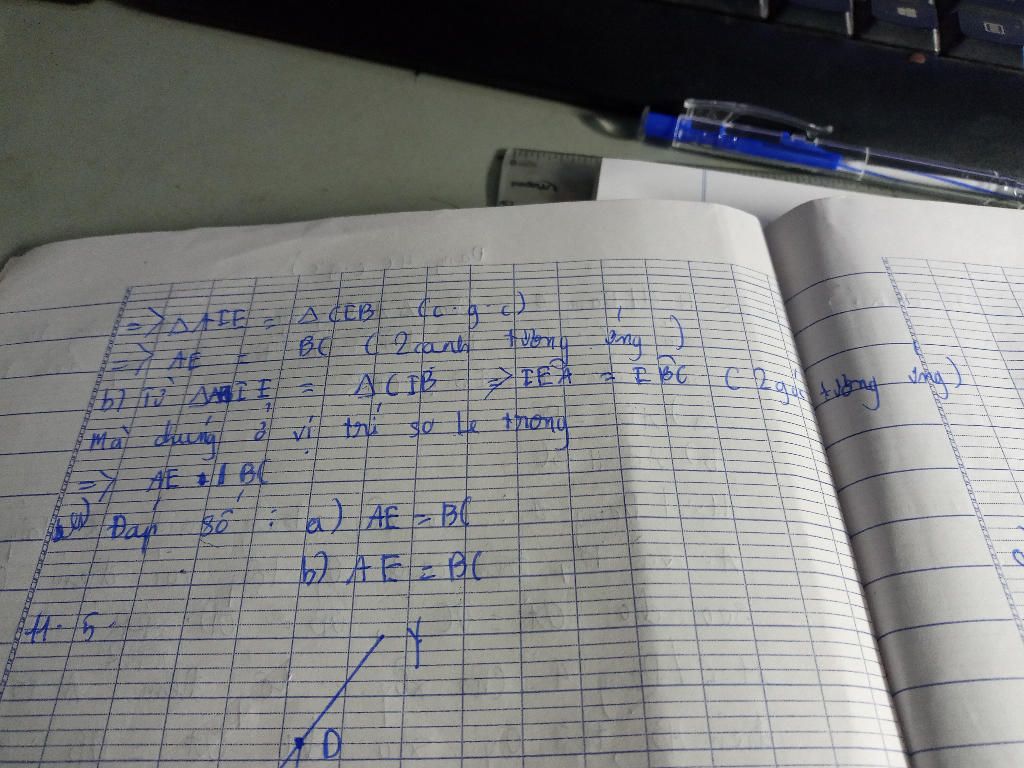 => Δ AIE = Δ CEB (c.g.c)
=> AE = BC (2 cạnh tương ứng)
b) Từ Δ IE = Δ CIB => IEA = EBC (2 góc tương ứng)
Mà chúng ở vị trí so le trong
=> AE // BC
Đáp số : a) AE = BC
b) AE = BC
4.5.
y
D